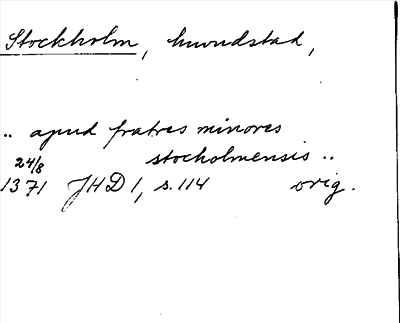 Stockholm, huvudstad,
.. apud fratres minores
stocholmensis ..
24/8
1371 JHD 1, s. 114 orig.